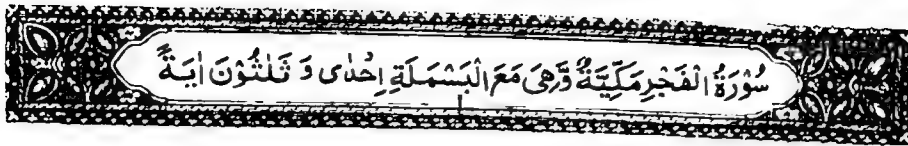 سُوْرَةُ الْفَجْرِ مَكِّيَّةٌ وَّهِىَ مَعَ الْبَسْمَلَةِ اِحْدٰى وَ ثَلٰثُوْنَ اٰيَةً